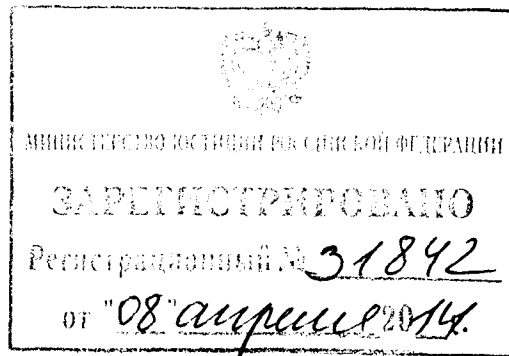 МИНИСТЕРСТВО ЮСТИЦИИ РОССИЙСКОЙ ФЕДЕРАЦИИ
ЗАРЕГИСТРИРОВАНО
Регистрационный № 31842
от "08" апреля 2014.